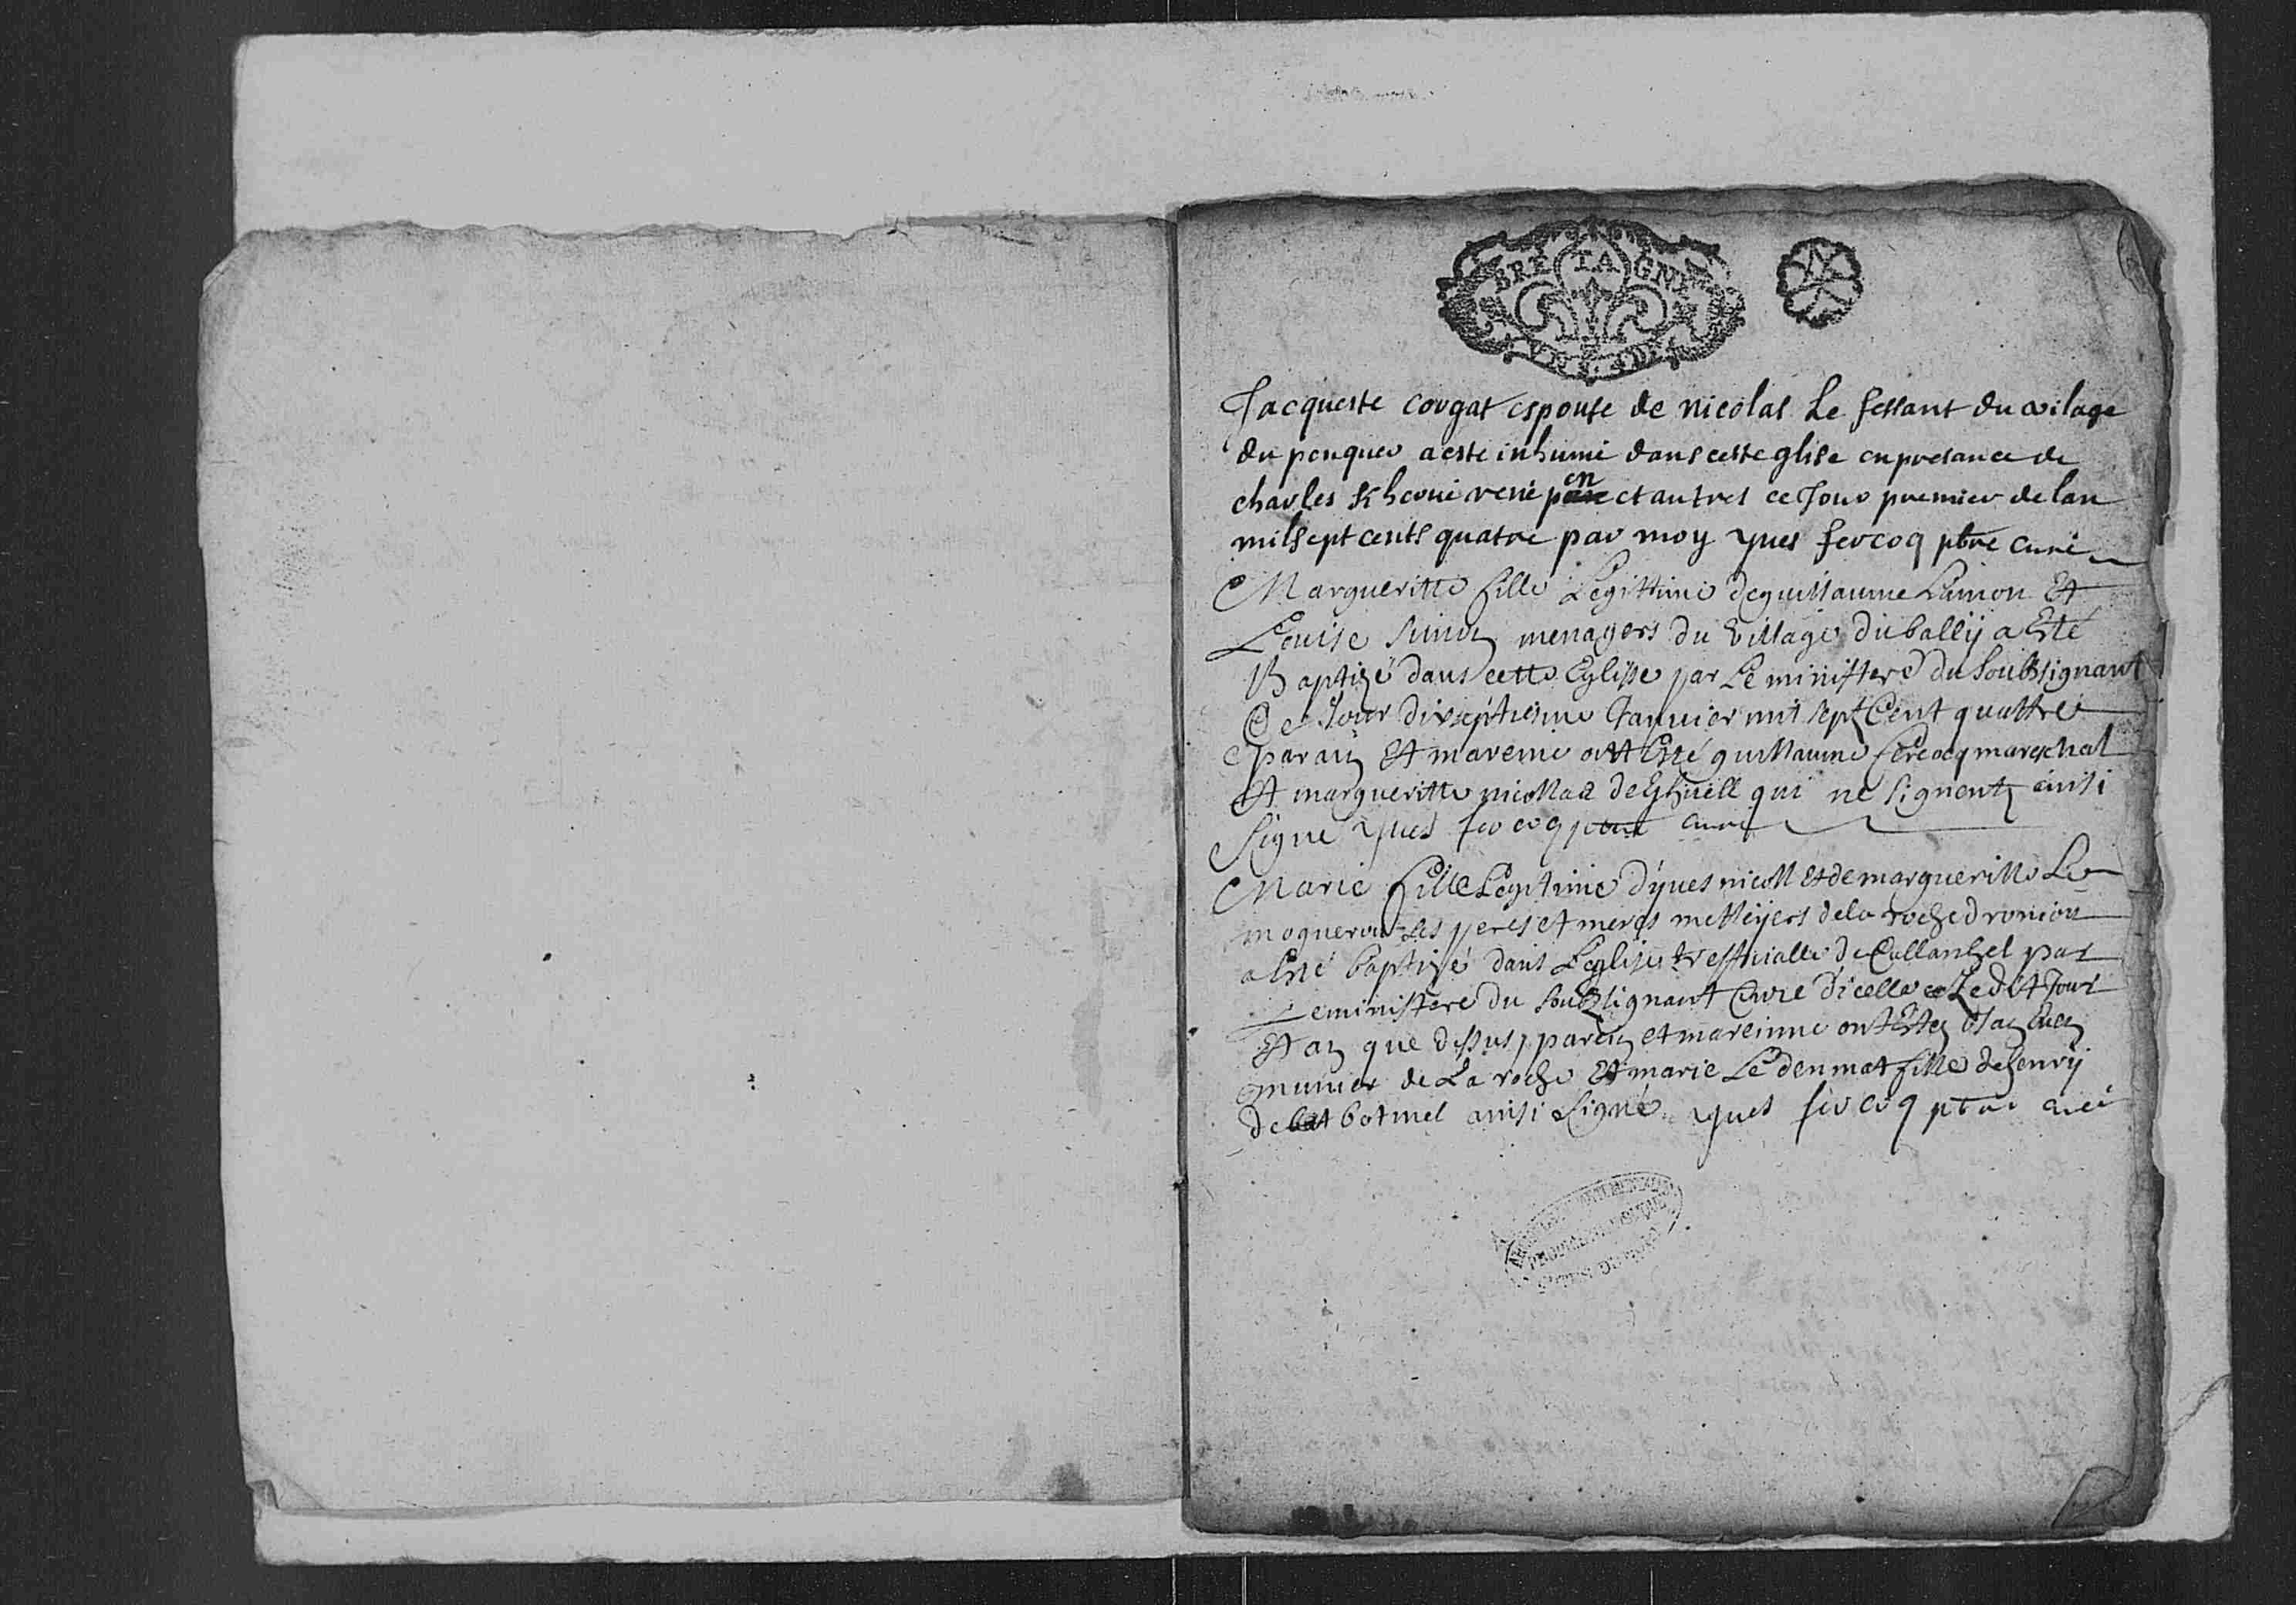 BRETAGNE
Jacqueste cougat espouse de nicolas Le fessant du vilage
du pouquer a este inhumé dans ceste glise en presance de
charles René pen et autres ce Jour premier de lan
mil sept cents quatre par moy yues fercoq ptre curé
Margueritte fille Legittime de guillaume Lamon Et
Louise menagers du village du bally a Esté
Baptizé dans cette Eglisse par Le ministere du Soubssignant
Ce Jour dixseptiesme Januier mil sept Cent quattre
parain Et mareine ont Esté guillaume fercocq mareschal
Et margueritte nicollas qui ne signent ainsi
Signé yues fercoq ptre curé
Marie fille Legitime d'yues nicoll et de margueritte Le
moguerou Les peres et meres metteyers de la roche droniou
a Esté baptizé dans L'eglise treffvialle de Callanhel par
Le ministere du Soubzsignant Curé d'icelle Ledit Jour
Et an que dessus, parein et mareinne ont Esté
munier de La roche Et marie Le denmat fille de henry
de botmel ainsi Signé yues fercoq ptre curé